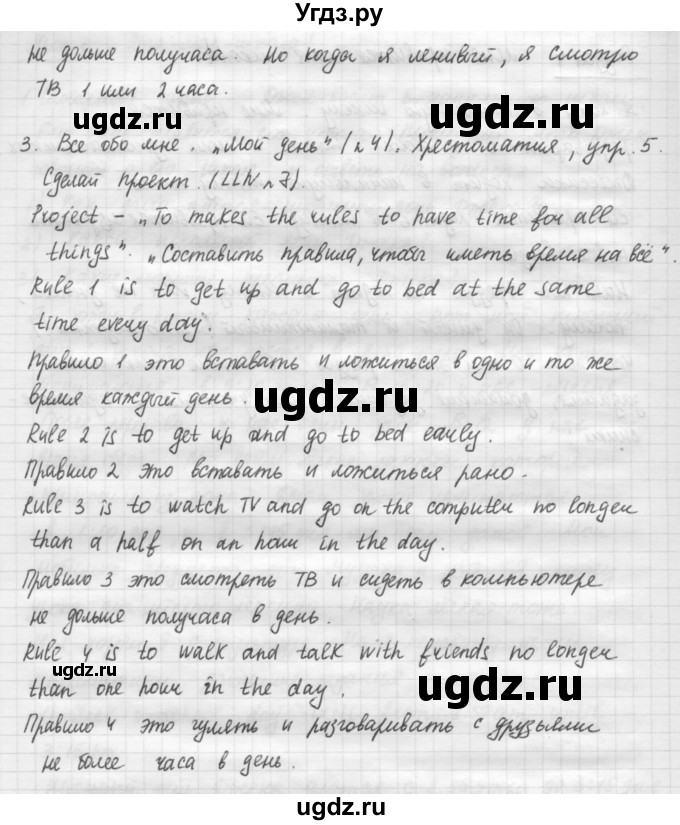 Угдз.ру
не дольше получаса. Но когда я ленивый, я смотрю
ТВ 1 или 2 часа.
ugdz.ru ugdz.ru
3. Все обо мне. „Мой день" (n 4). Хрестоматия, упр. 5.
Сделай проект. (LLN n 7).
Project – „To makes the rules to have time for all
things". „Составить правила, чтобы иметь время на всё".
Rule 1 is to get up and go to bed at the same
time every day.
Правило 1 это вставать и ложиться в одно и то же
время каждый день.
ugdz.ru
Rule 2 is to get up and go to bed early.
Правило 2 это вставать и ложиться рано.
Rule 3 is to watch TV and go on the computer no longer
than a half on an hour in the day.
Правило 3 это смотреть ТВ и сидеть в компьютере
не дольше получаса в день.
Rule 4 is to walk and talk with friends no longer
ugdz.ru ugdz.ru
than one hour in the day.
Правило 4 это гулять и разговаривать с друзьями
не более часа в день.
ugdz.ru